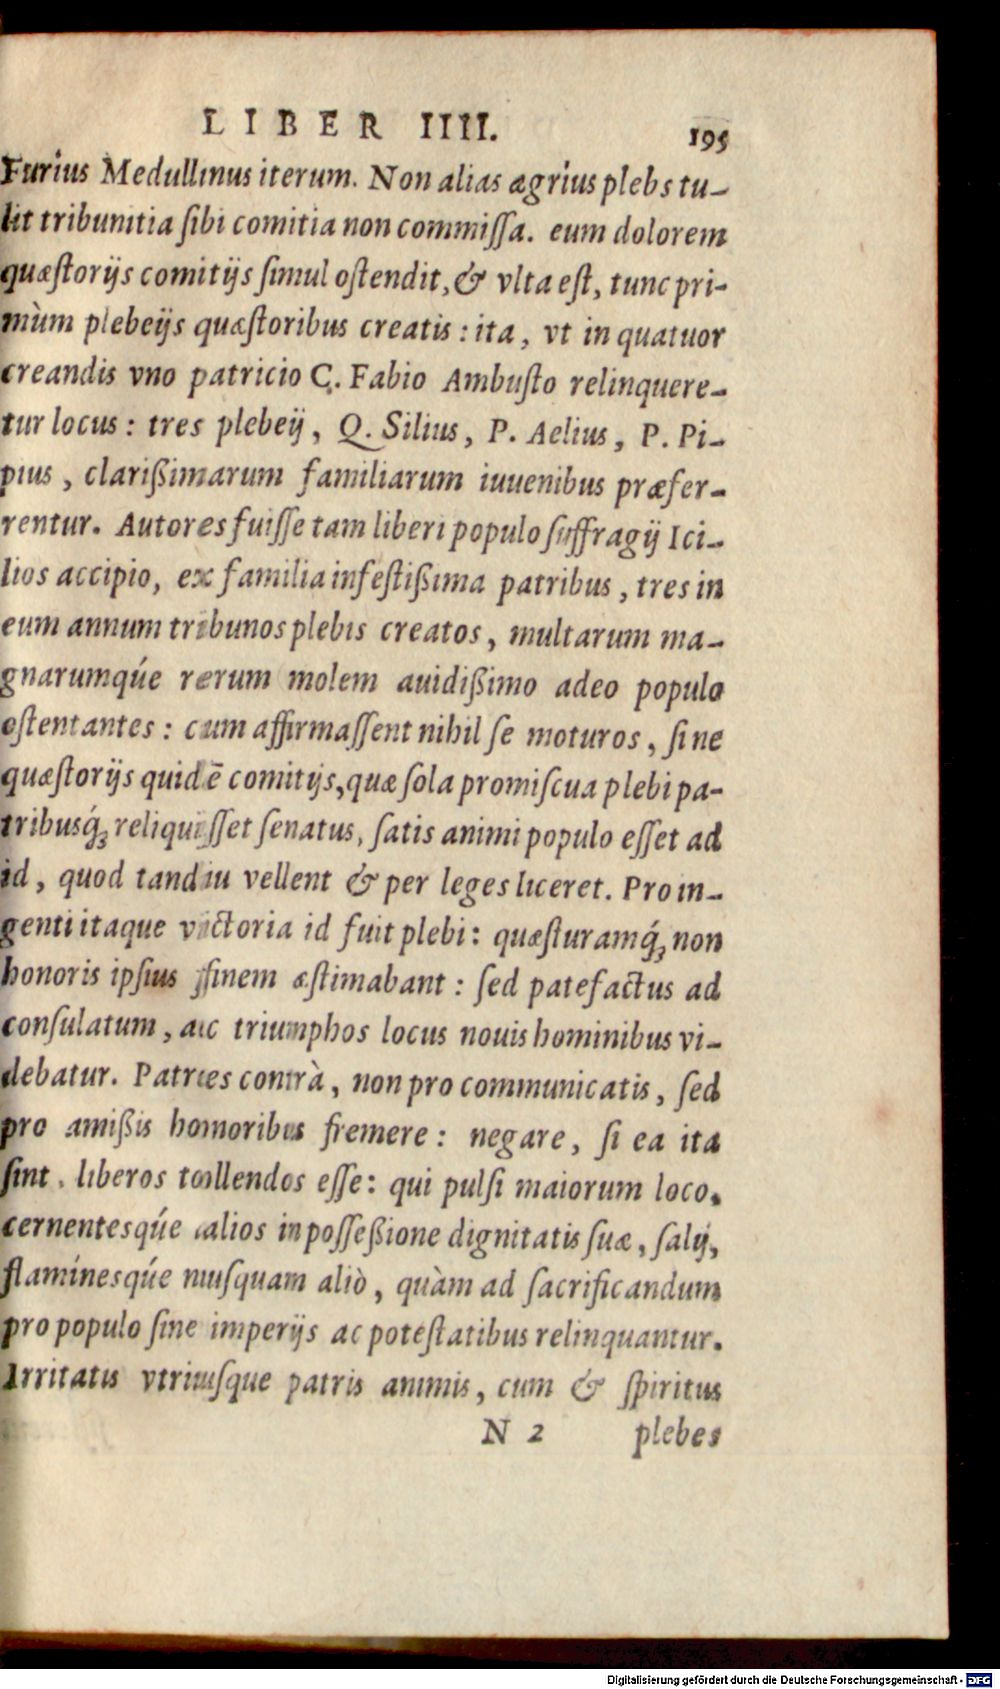 LIBER IIII. 195
Furius Medullinus iterum. Non alias ægrius plebs tu-
lit tribunitia ſibi comitia non commiſſa. eum dolorem
quæſtorijs comitijs ſimul oſtendit, & vlta eſt, tunc pri-
mùm plebeijs quæſtoribus creatis: ita, vt in quatuor
creandis vno patricio C. Fabio Ambuſto relinquere-
tur locus: tres plebeij, Q. Silius, P. Aelius, P. Pi-
pius, clarißimarum familiarum iuuenibus præfer-
rentur. Autores fuiſſe tam liberi populo ſuffragij Ici-
lios accipio, ex familia infeſtißima patribus, tres in
eum annum tribunos plebis creatos, multarum ma-
gnarumqúe rerum molem auidißimo adeo populo
oſtentantes: cum affirmaſſent nihil ſe moturos, ſi ne
quæſtorijs quidē comitijs, quæ ſola promiſcua plebi pa-
tribusq́; reliquiſſet ſenatus, ſatis animi populo eſſet ad
id, quod tandiu vellent & per leges liceret. Pro in-
genti itaque victoria id fuit plebi: quæſturamq́; non
honoris ipſius finem æſtimabant: ſed patefactus ad
conſulatum, ac triumphos locus nouis hominibus vi-
debatur. Patres contrà, non pro communicatis, ſed
pro amißis honoribus fremere: negare, ſi ea ita
ſint, liberos tollendos eſſe: qui pulſi maiorum loco,
cernentesqúe alios in poſſeßione dignitatis ſuæ, ſalij,
flaminesqúe nuſquam aliò, quàm ad ſacrificandum
pro populo ſine imperijs ac poteſtatibus relinquantur.
Irritatis vtriuſque patris animis, cum & ſpiritus
N 2 plebes
Digitalisierung gefördert durch die Deutsche Forschungsgemeinschaft - DFG